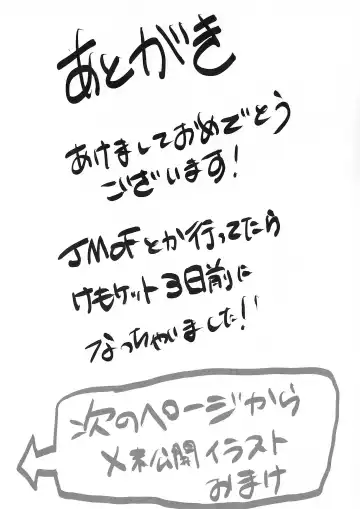 あとがき
あけましておめでとう
ございます!
JMoFとか行ってたら
けもケット3日前に
なっちゃいました!!
次のページから
×未公開イラスト
おまけ